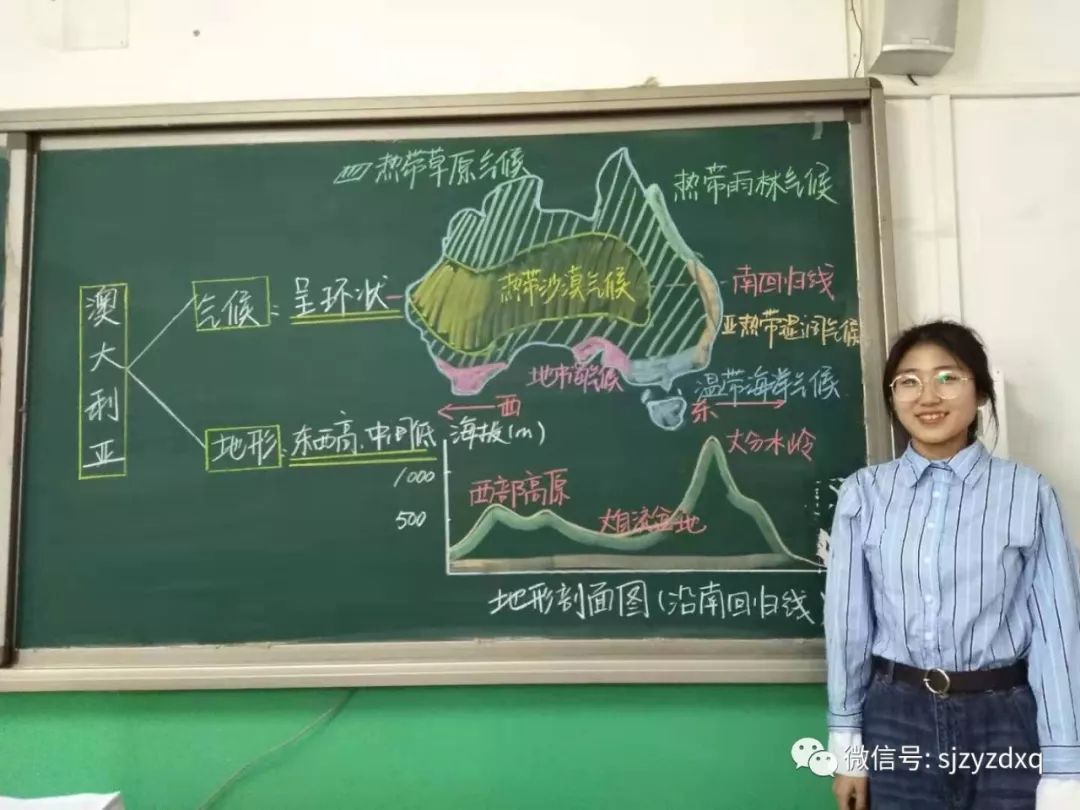 热带草原气候
热带雨林气候
热带沙漠气候
南回归线
亚热带湿润气候
澳大利亚
气候：呈环状
地中海气候
温带海洋气候
西
东
地形：东西高、中间低
海拔(m)
1000
500
西部高原
大自流盆地
大分水岭
地形剖面图(沿南回归线)
微信号: sjzyzdxq